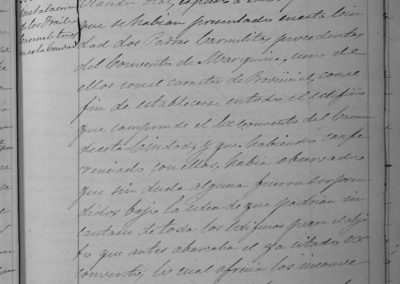 Instalacion
de los Frailes
Carmelitas
en esta Ciudad
que se habian presentado en esta Ciu
dad dos Padres Carmelitas procedentes
del Convento de Marquina, uno de
ellos con el caracter de Provincial, con el
fin de establecerse en todo el edificio
que comprende el ex convento del Carmen
de esta Ciudad, y que habiendo confe
renciado con ellos, habia observado
que sin duda alguna fueron sorpren
didos bajo la idea de que podrian in
cautarse de todo los edificios que en el
que antes abarcaba el ya citado ex
convento, lo cual ofrecia los inconve-